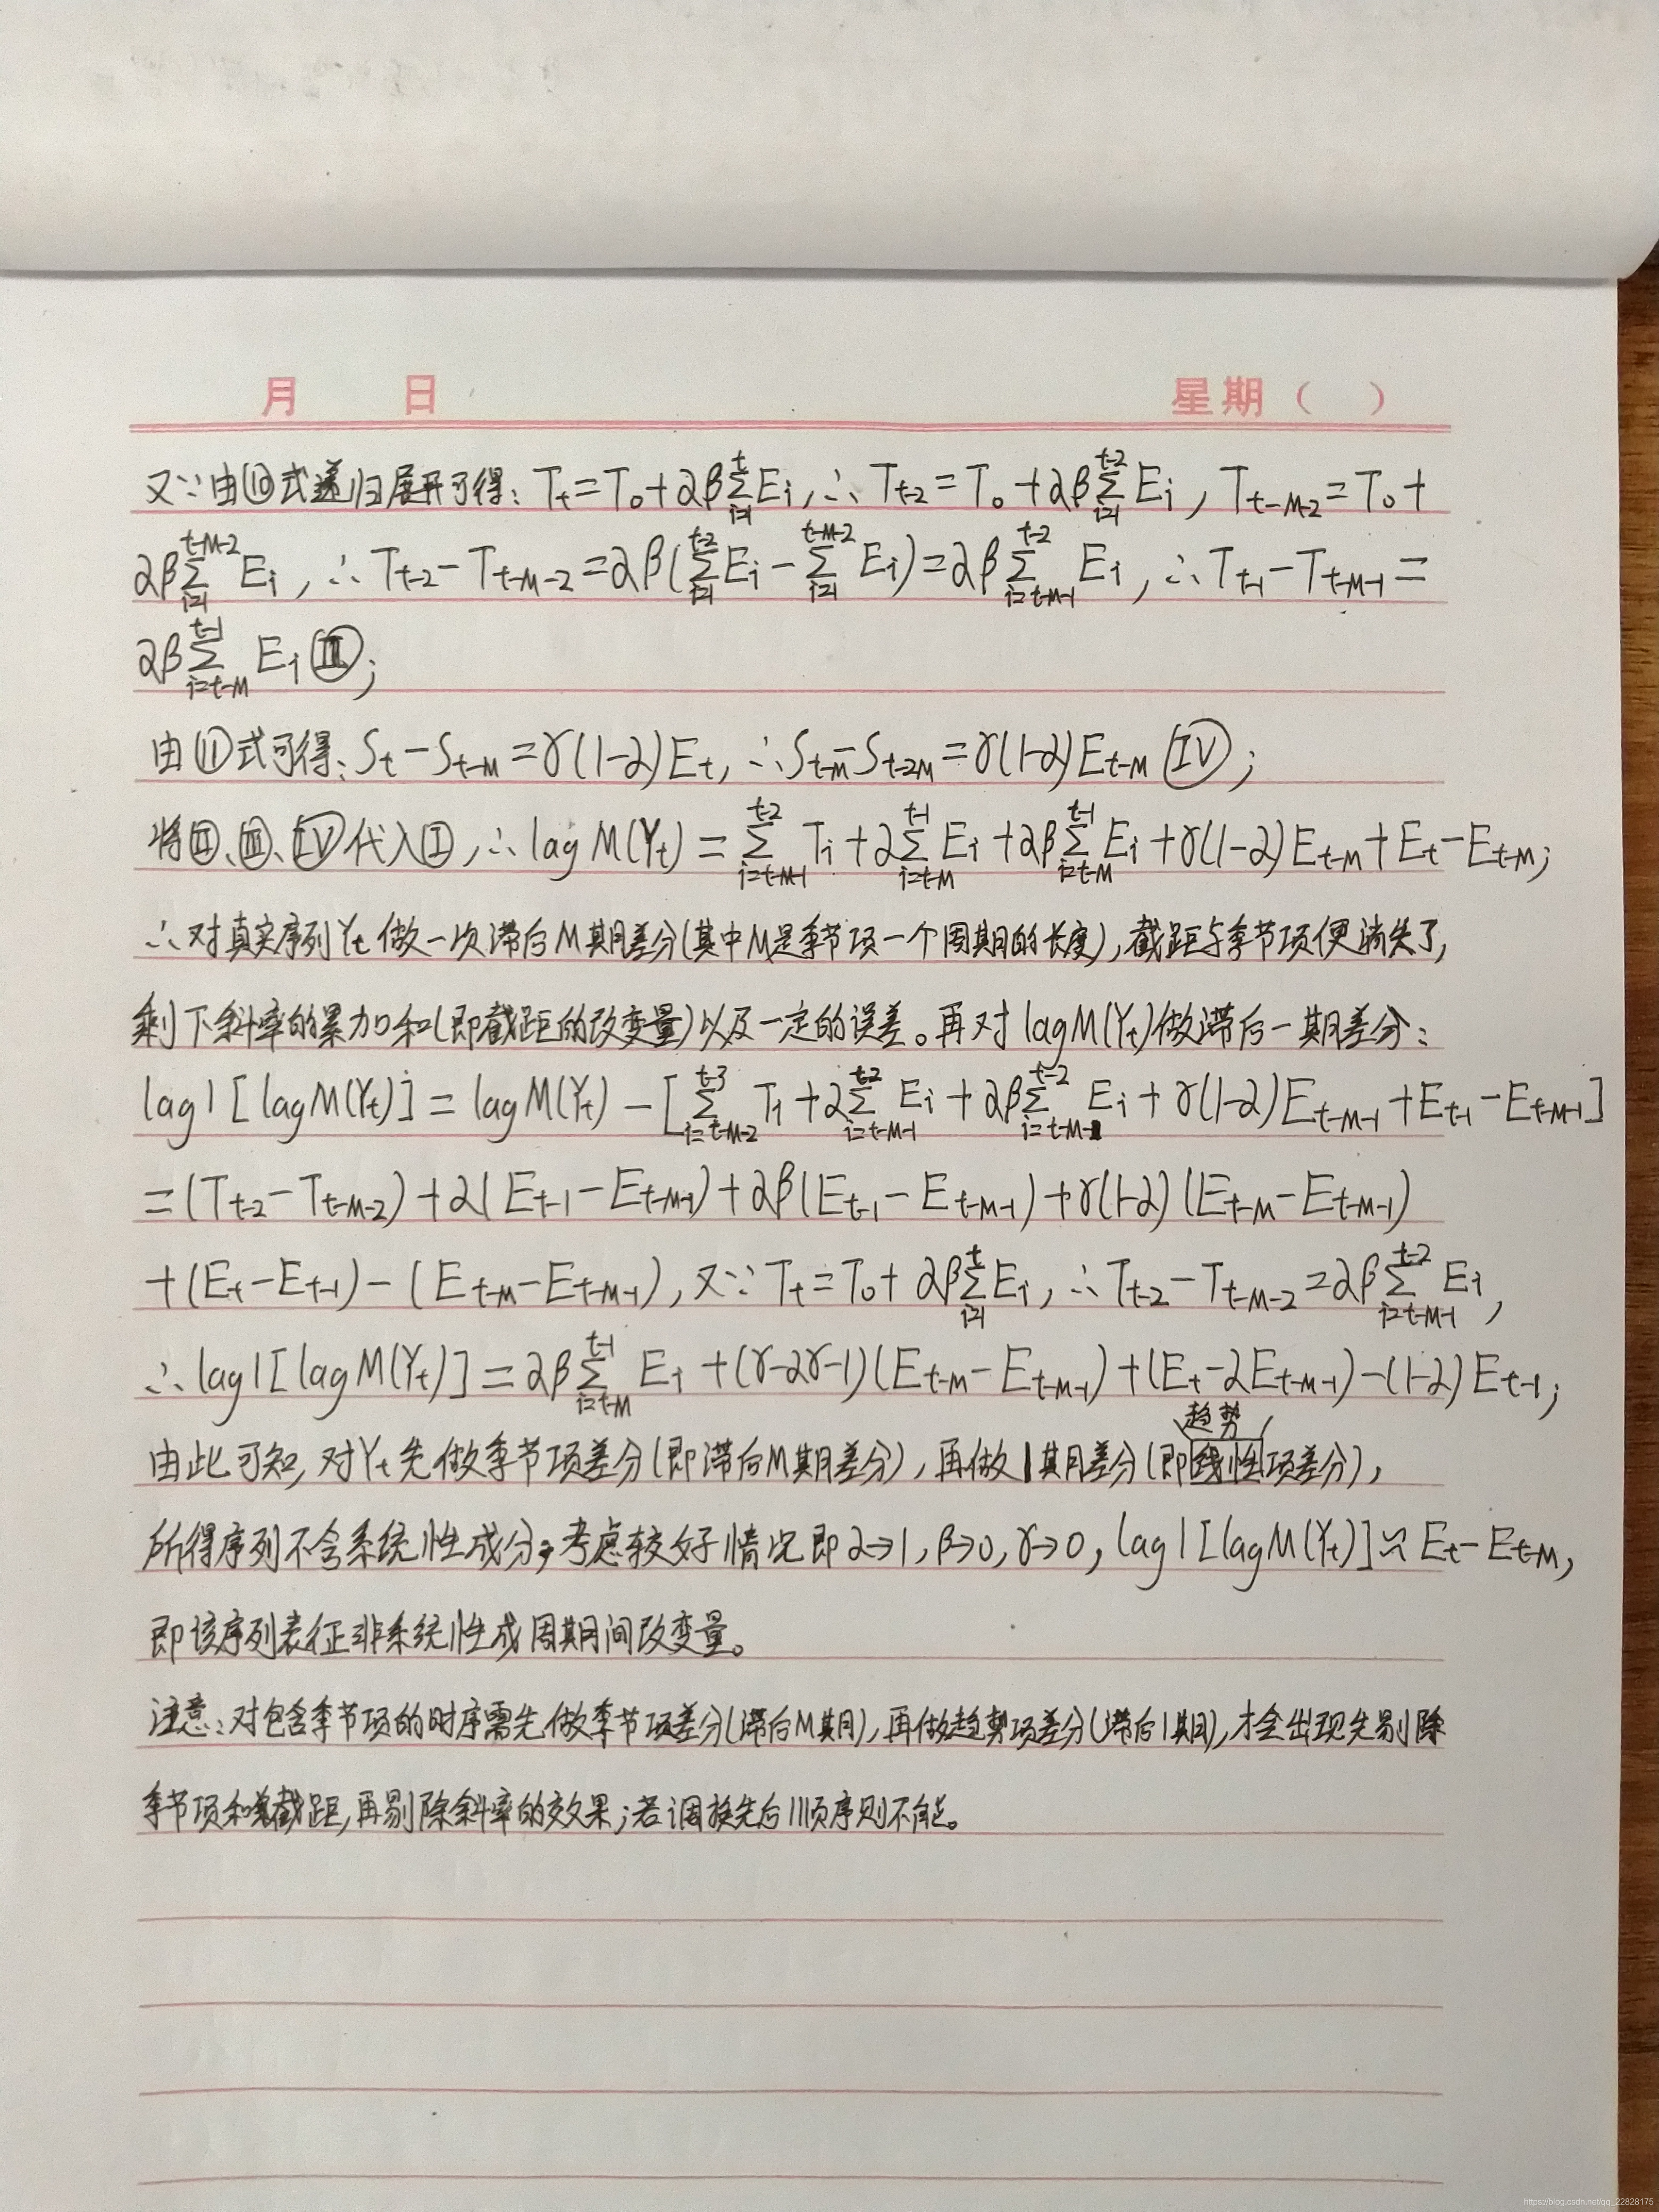 月 日 星期( )
又∵由⑩式递归展开可得: T_t=T_0+αβ∑_{i=1}^{t}E_i, ∴T_{t-2}=T_0+αβ∑_{i=1}^{t-2}E_i, T_{t-M-2}=T_0+
αβ∑_{i=1}^{t-M-2}E_i, ∴T_{t-2}-T_{t-M-2}=αβ(∑_{i=1}^{t-2}E_i-∑_{i=1}^{t-M-2}E_i)=αβ∑_{i=t-M-1}^{t-2}E_i, ∴T_{t-1}-T_{t-M-1}=
αβ∑_{i=t-M}^{t-1}E_i Ⅲ;
由⑪式可得: S_t-S_{t-M}=γ(1-α)E_t, ∴S_{t-M}-S_{t-2M}=γ(1-α)E_{t-M} Ⅳ;
将Ⅱ、Ⅲ、Ⅳ代入Ⅰ, ∴lag M(Y_t)=∑_{i=t-M-1}^{t-2}T_i+α∑_{i=t-M}^{t-1}E_i+αβ∑_{i=t-M}^{t-1}E_i+γ(1-α)E_{t-M}+E_t-E_{t-M};
∴对真实序列Y_t做一次滞后M期差分(其中M是季节项一个周期的长度),截距与季节项便消失了,
剩下斜率的累加和(即截距的改变量)以及一定的误差。再对lagM(Y_t)做滞后一期差分:
lag1[lagM(Y_t)]=lagM(Y_t)-[∑_{i=t-M-2}^{t-3}T_i+α∑_{i=t-M-1}^{t-2}E_i+αβ∑_{i=t-M-1}^{t-2}E_i+γ(1-α)E_{t-M-1}+E_{t-1}-E_{t-M-1}]
=(T_{t-2}-T_{t-M-2})+α(E_{t-1}-E_{t-M-1})+αβ(E_{t-1}-E_{t-M-1})+γ(1-α)(E_{t-M}-E_{t-M-1})
+(E_t-E_{t-1})-(E_{t-M}-E_{t-M-1}), 又∵T_t=T_0+αβ∑_{i=1}^{t}E_i, ∴T_{t-2}-T_{t-M-2}=αβ∑_{i=t-M-1}^{t-2}E_i,
∴lag1[lagM(Y_t)]=αβ∑_{i=t-M}^{t-1}E_i+(γ-αγ-1)(E_{t-M}-E_{t-M-1})+(E_t-αE_{t-M-1})-(1-α)E_{t-1};
趋势
由此可知,对Y_t先做季节项差分(即滞后M期差分),再做1期差分(即线性项差分),
所得序列不含系统性成分,考虑较好情况即α→1,β→0,γ→0, lag1[lagM(Y_t)]≈E_t-E_{t-M},
即该序列表征非系统性成周期间改变量。
注意:对包含季节项的时序需先做季节项差分(滞后M期),再做趋势项差分(滞后1期),才会出现先剔除
季节项和截距,再剔除斜率的效果;若调换先后顺序则不能。
https://blog.csdn.net/qq_22828175